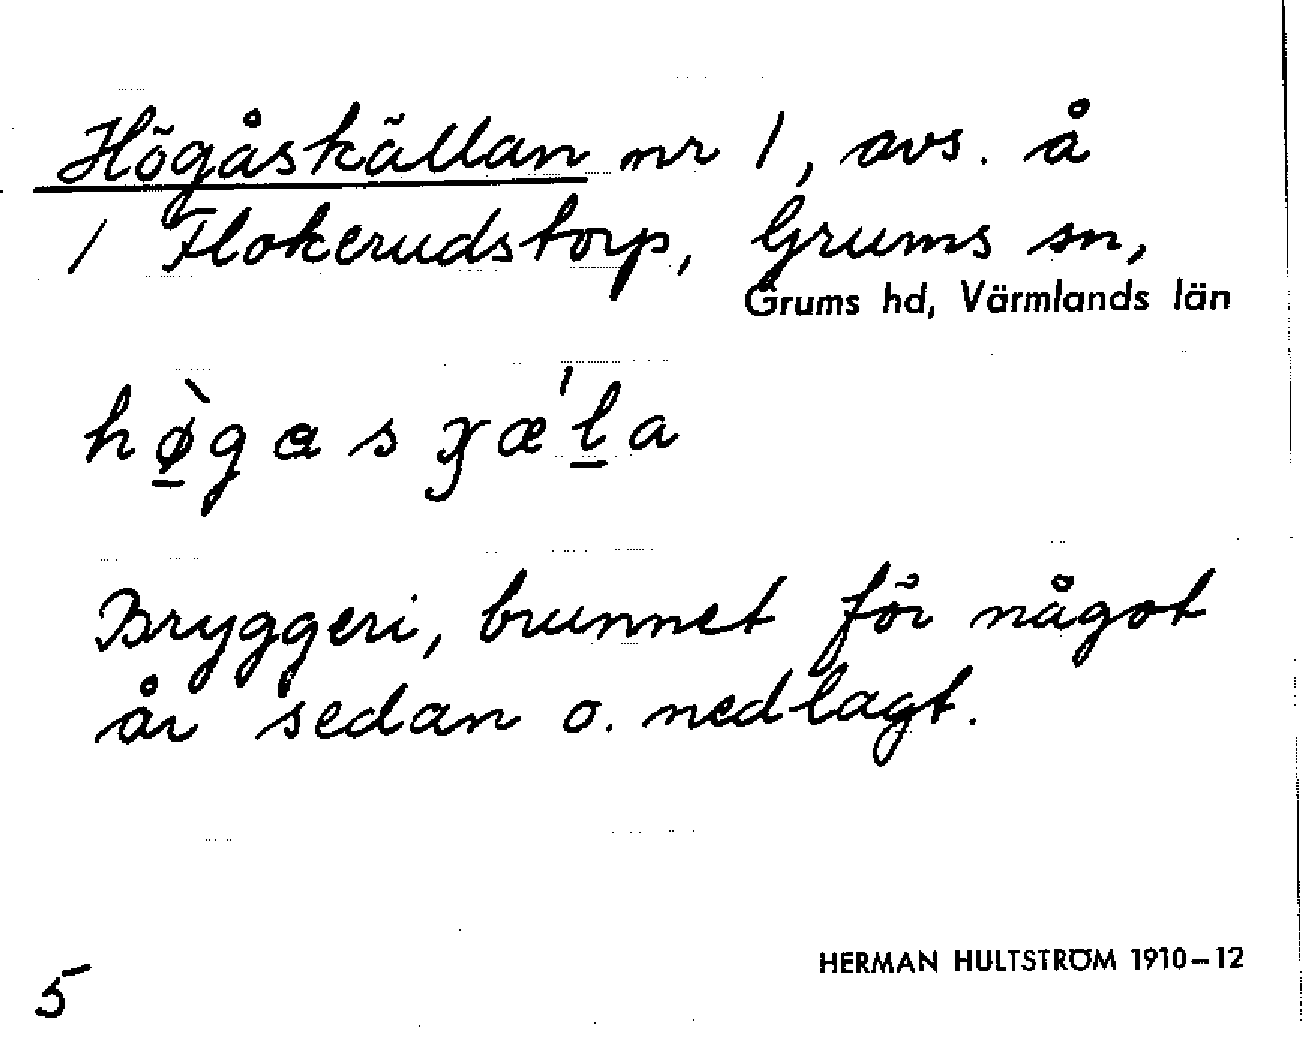 Högåskällan nr 1, avs. å
1 Flokerudstorp, Grums sn,
Grums hd, Värmlands län
hø̠̀gasχæ'l̠a
Bryggeri, brunnet för något
år sedan o. nedlagt.
HERMAN HULTSTRÖM 1910–12
5